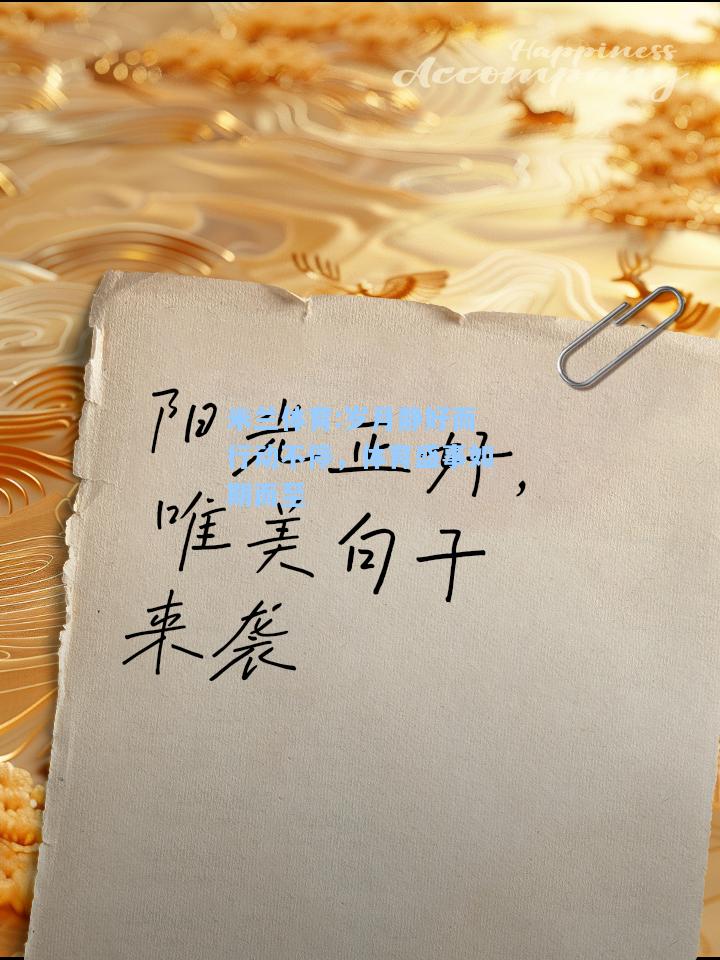 Happiness
Accompany
阳光正好，
唯美句子
来袭
米兰体育:岁月静好而
行动不停，体育盛事如
期而至